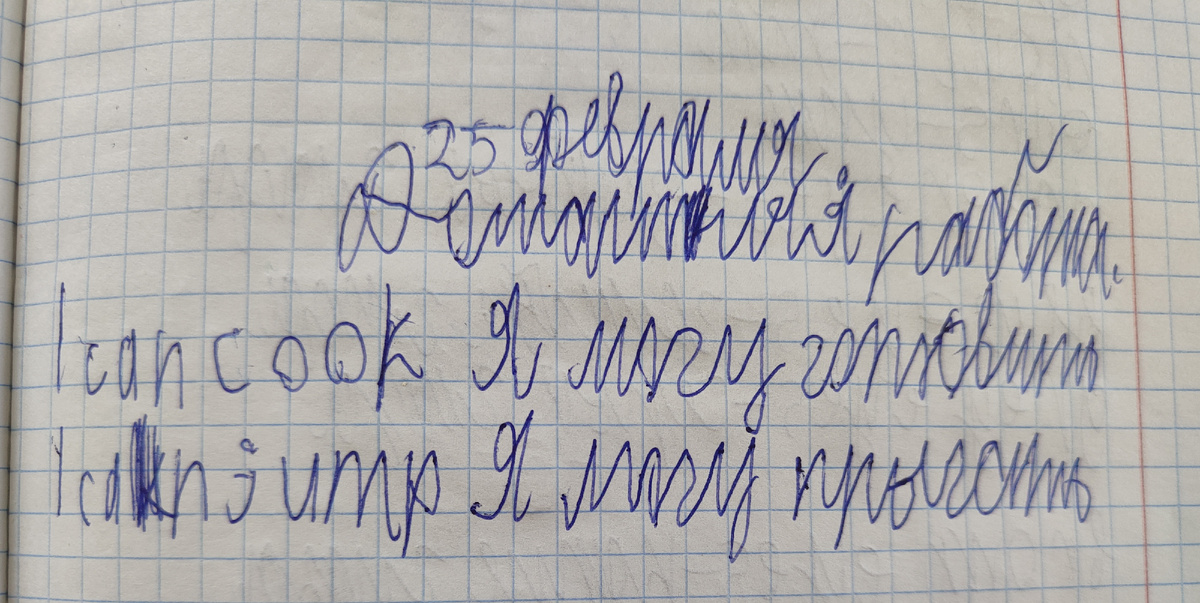 25 февраля
Домашняя работа.
I can cook Я могу готовить
I can jump Я могу прыгать